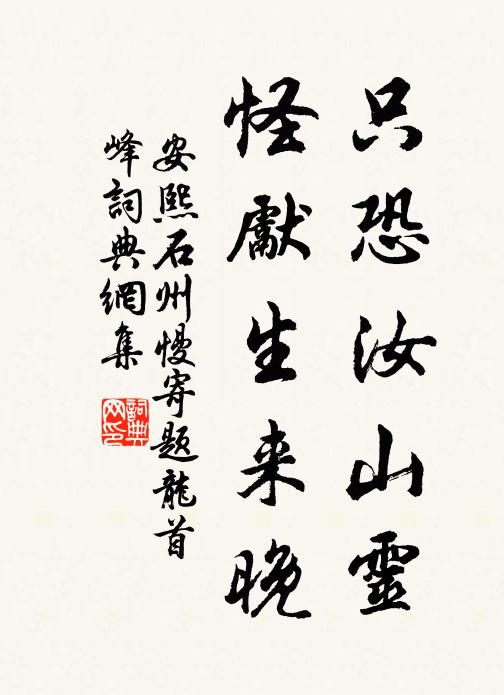 只恐汝山靈
怪獻生来晚
安熙石州慢寄题龍首
峰詞典網集
詞典
网印